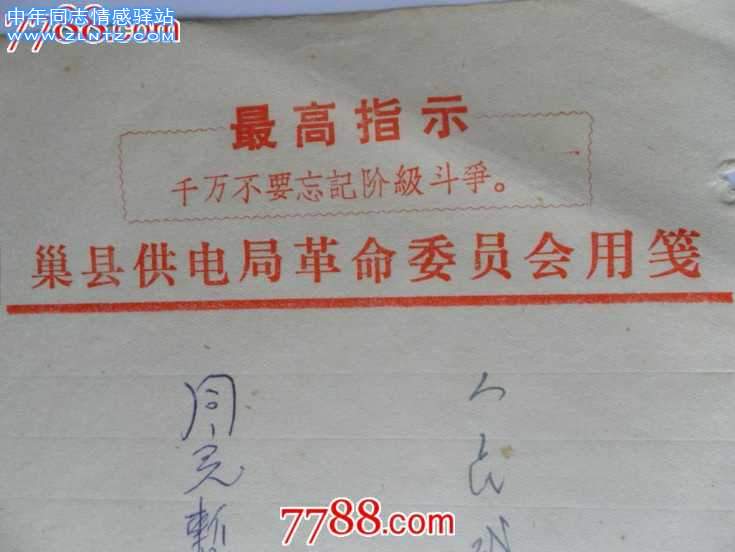 中年同志情感驿站
www.ZLNTZ.COM
7788.com
最高指示
千万不要忘記阶級斗爭。
巢县供电局革命委员会用笺
人民
同意暫
7788.com